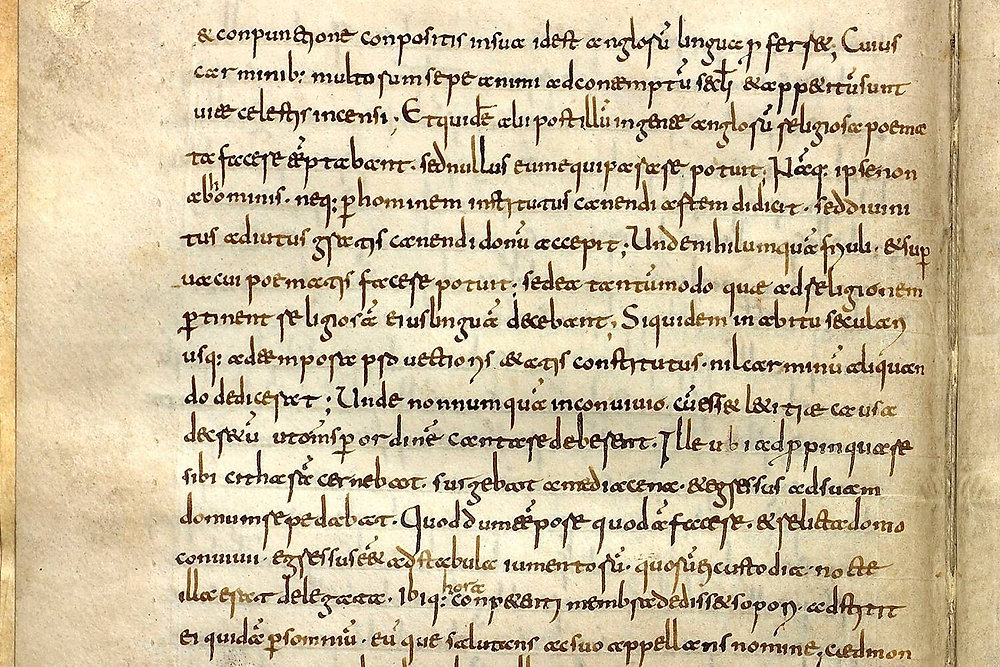 & conpunctione conpositis in sua id est anglorū lingua ꝓferr&; Cuius
carminib: multorum sepe animi ad contemptū sæcłi & app&itū sunt
uitæ celestis incensi; Et quidē alii post illū in gente anglorū religiosa poema
ta facere tēptabant. sed nullus eum equiparare potuit. Nāq: ipse non
ab hominis. neq: ꝑ hominem institutus canendi artem didicit. sed diuini
tus adiutus gratis canendi donū accepit; Unde nihil umquā friuoli. & suꝑ
uacui poematis facere potuit; sed ea tantūmodo quæ ad religionem
ꝑtinent religiosā eius linguā decebant; Siquidem in abitu seculari
usq: ad tempora ꝓuectioris &atis constitutus. nil carminū aliquan
do dedicerat; Unde nonnumquā in conuiuio. cū ess& l&itiæ causa
decr&ū ut oms ꝑ ordinē cantare deberent. Ille ubi adꝓpinquare
sibi citharā cernebat. surgebat a media cena. & egressus ad suam
domum repedabat. Quod dum tēpore quodā facer&. & relicta domo
conuiuii. egressus ēē& ad stabula iumentorū. quorū ei custodia. nocte
illa erat delegata. ibiq: hora conp&enti membra dediss& sopori. adstitit
ei quidā ꝑ somniū. eū que salutans ac suo appellans nomine, cædmon